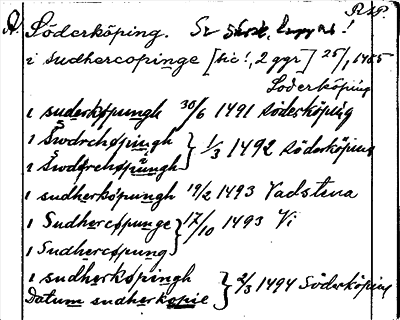 Ö.
Söderköping. Se särsk. !
i sudhercopinge [sic!, 2 ggr] 25/1 1485
Söderköping
i suderkøpungh 30/6 1491 Söderköping
i Swdrchøpingh
i Swdørchøpungh } 1/3 1492 Söderköping
i sudherköpungh 19/2 1493 Vadstena
i Sudhercøpunge
i Sudhercøpung } 17/10 1493 Vi
i sudherkøpingh
Datum sudherkøpie } 2/3 1494 Söderköping